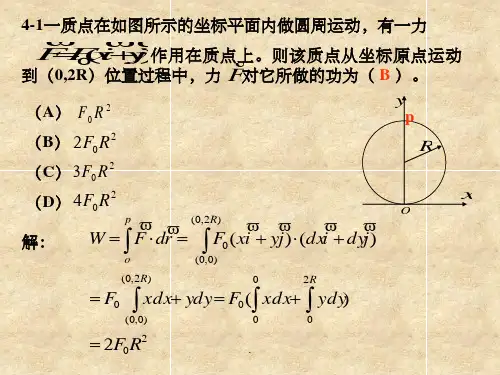 4-1一质点在如图所示的坐标平面内做圆周运动，有一力
作用在质点上。则该质点从坐标原点运动
到（0,2R）位置过程中，力 F 对它所做的功为（ B ）。
（A） F₀R²
（B） 2F₀R²
（C） 3F₀R²
（D） 4F₀R²
y
p
R
x
O
解：
W = ∫ₒᵖ F̄ϖ · drϖ = ∫₍₀,₀₎⁽⁰,²ᴿ⁾ F₀(xiϖ + yjϖ) · (dxiϖ + dyjϖ)
= F₀ ∫₍₀,₀₎⁽⁰,²ᴿ⁾ xdx + ydy = F₀(∫₀⁰ xdx + ∫₀²ᴿ ydy)
= 2F₀R²